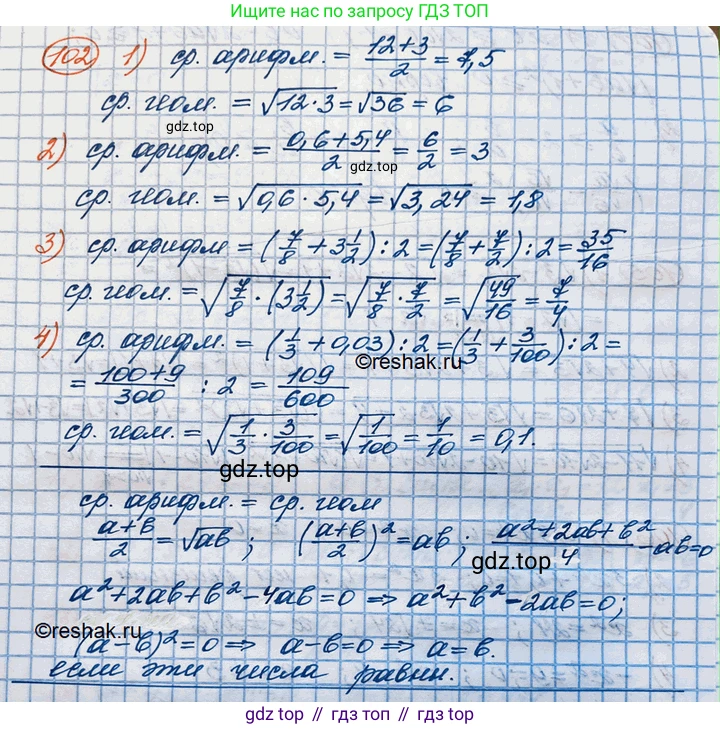 Ищите нас по запросу ГДЗ ТОП
102 1) ср. арифм. = (12+3)/2 = 7,5
ср. геом. = √(12·3) = √36 = 6
gdz.top
2) ср. арифм. = (0,6+5,4)/2 = 6/2 = 3
ср. геом. = √(0,6·5,4) = √3,24 = 1,8
3) ср. арифм = (7/8 + 3 1/2) : 2 = (7/8 + 7/2) : 2 = 35/16
ср. геом. = √(7/8 · (3 1/2)) = √(7/8 · 7/2) = √(49/16) = 7/4
4) ср. арифм. = (1/3 + 0,03) : 2 = (1/3 + 3/100) : 2 =
©reshak.ru
= (100+9)/300 : 2 = 109/600
ср. геом. = √(1/3 · 3/100) = √(1/100) = 1/10 = 0,1.
gdz.top
ср. арифм. = ср. геом
(a+b)/2 = √ab ; ((a+b)/2)² = ab ; (a²+2ab+b²)/4 - ab=0
gdz.top
a²+2ab+b²-4ab=0 ⇒ a²+b²-2ab=0;
©reshak.ru
(a-b)²=0 ⇒ a-b=0 ⇒ a=b.
если эти числа равны.
gdz top // гдз топ // gdz.top